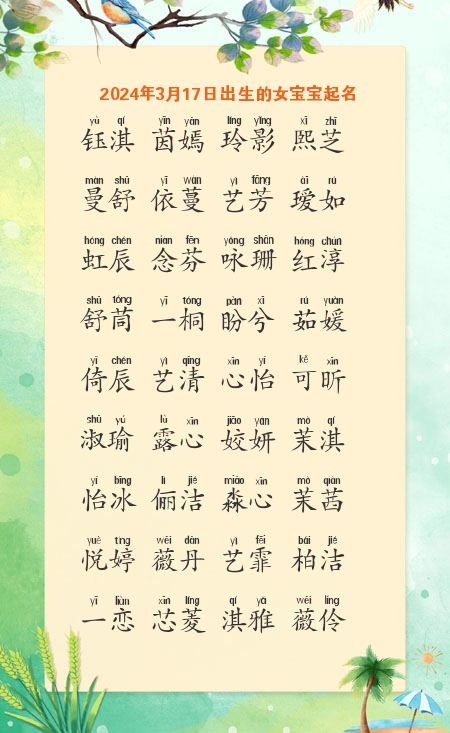 2024年3月17日出生的女宝宝起名
yù qí yīn yān líng yǐng xī zhī
钰淇 茵嫣 玲影 熙芝
màn shū yī wàn yì fāng ài rú
曼舒 依蔓 艺芳 瑷如
hóng chén niàn fēn yǒng shān hóng chún
虹辰 念芬 咏珊 红淳
shū tóng yī tóng pàn xī rú yuàn
舒茼 一桐 盼兮 茹媛
yǐ chén yì qīng xīn yí kě xīn
倚辰 艺清 心怡 可昕
shū yú lù xīn jiāo yán mò qí
淑瑜 露心 姣妍 茉淇
yí bīng lì jié miǎo xīn mò qiàn
怡冰 俪洁 淼心 茉茜
yuè tíng wēi dān yì fēi bǎi jié
悦婷 薇丹 艺霏 柏洁
yī liàn xīn líng qí yǎ wēi líng
一恋 芯菱 淇雅 薇伶